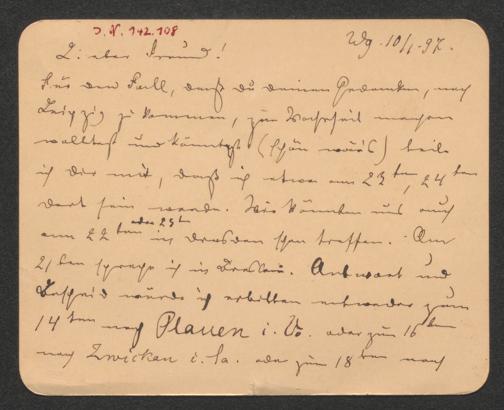 J. N. 142.108
Wg. 10/1. 97.
Lieber Freund!
Für den Fall, daß du deinen Gedanken, nach
Leipzig zu kommen, zur Wahrheit machen
wolltest und könntest (schön wär's) teile
ich dir mit, daß ich etwa am 23ten, 24ten
dort sein werde. Wir könnten uns auch
am 22ten oder 23ten in Dresden schon treffen. Am
21ten spreche ich in Breslau. Antwort und
Bescheid würde ich erbitten entweder zum
14ten nach Plauen i. V. oder zum 16ten
nach Zwickau i. Sa. oder zum 18ten nach